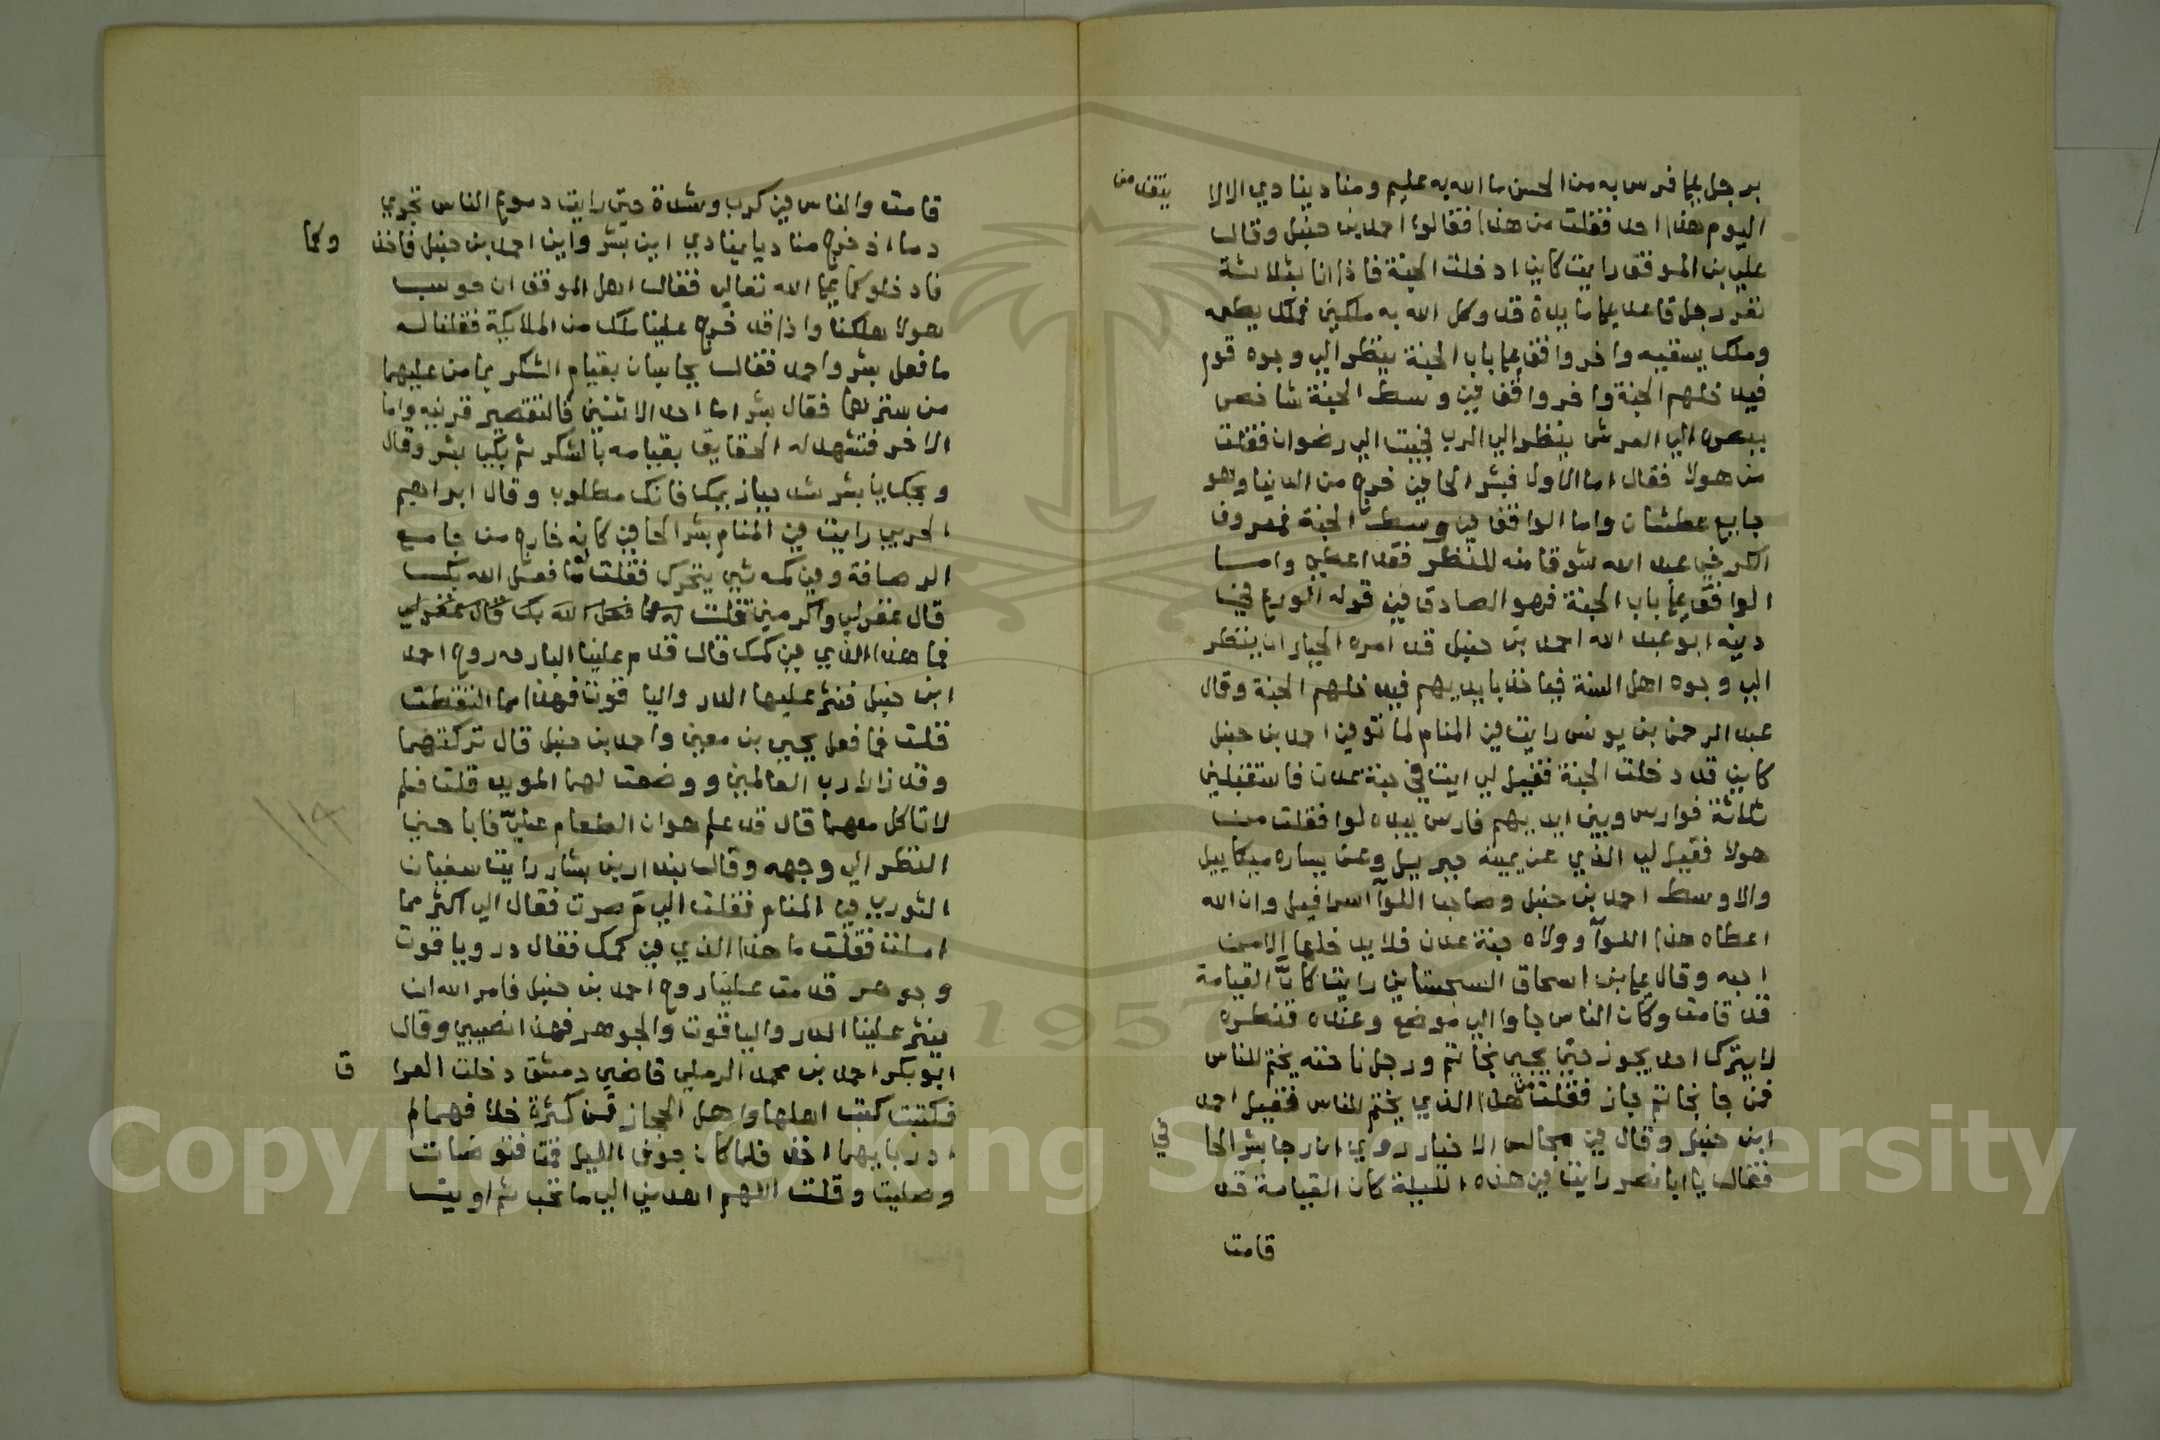 برجل علي فرس به من الحسن ما الله به عليم ومناد ينادي الا لا يتقدمن
اليوم هذا احد فقلت من هذا فقالوا احمد بن حنبل وقال
علي بن الموفق رايت كاني ادخلت الجنة فاذا انا بثلاثة
نفر رجل قاعد علي مايدة قد وكل الله به ملكين فملك يطعمه
وملك يسقيه واخر واقف علي باب الجنة ينظر الي وجوه قوم
فيدخلهم الجنة واخر واقف في وسط الجنة شاخص
ببصره الي العرش ينظر الي الرب فجيت الي رضوان فقلت
من هولا فقال اما الاول فبشر الحافي خرج من الدنيا وهو
جايع عطشان واما الواقف في وسط الجنة فمعروف
الكرخي عبد الله شوقا منه للنظر فقد اعطي واما
الواقف علي باب الجنة فهو الصادق في قوله الورع في
دينه ابو عبد الله احمد بن حنبل قد امره الجبار ان ينظر
الي وجوه اهل السنة فياخذ بايديهم فيدخلهم الجنة وقال
عبد الرحمن بن يونس رايت في المنام لما توفي احمد بن حنبل
كاني قد دخلت الجنة فقيل لي انت في جنة عدن فاستقبلني
ثلاثة فوارس وبين ايديهم فارس بيده لوا فقلت من
هولا فقيل لي الذي عن يمينه جبريل وعن يساره ميكاييل
والاوسط احمد بن حنبل وصاحب اللوآ اسرافيل وان الله
اعطاه هذا اللوآ وولاه جنة عدن فلا يدخلها الا من
احبه وقال علي بن اسحاق السجستاني رايت كانّ القيامة
قد قامت وكان الناس جاوا الي موضع وعنده قنطره
لا يترك احد يجوز حتي يجي بخاتم ورجل ناحته يختم للناس
فمن جا بخاتم جاز فقلت من هذا الذي يختم للناس فقيل احمد
ابن حنبل وقال في مجالس الاخيار روي ان رجا بشر الحا في
فقال يا ابا نصر رايت في هذه الليلة كان القيامة قد
قامت
قامت والناس في كرب وشدة حتي رايت دموع الناس تجري
دما اذ خرج مناديا ينادي اين بشر واين احمد بن حنبل فاخذ وكما
فادخلوكما علي الله تعالي فقال اهل الموقف ان حوسب
هولا هلكنا واذا قد خرج علينا ملك من الملايكة فقلنا له
ما فعل بشر واحمد فقال يحاسبان بقيام الشكر بما من عليهما
من سترهما فقال بشر اما احد الاثنين فالتقصير قرينه واما
الاخر فتشهد له الحقايق بقيامه بالشكر ثم بكي بشر وقال
ويحك يا بشر شد ميازيبك فانك مطلوب وقال ابراهيم
الحربي رايت في المنام بشر الحافي كانه خارج من جامع
الرصافة وفي كمه شي يتحرك فقلت ما فعل الله بك
قال غفر لي واكرمني فقلت له ما فعل الله بك قال غفر لي
فما هذا الذي في كمك قال قدم علينا البارحه روح احمد
ابن حنبل فنثر عليها الدر والياقوت فهذا مما التقطت
قلت فما فعل يحيي بن معين واحمد بن حنبل قال تركتهما
وقد زارا رب العالمين ووضعت لهما الموايد قلت فلم
لا تاكل معهما قال قد علم هوان الطعام عليّ فاباحني
النظر الي وجهه وقال بندار بن بشار رايت سفيان
الثوري في المنام فقلت الي م صرت فقال الي اكثر مما
املت فقلت ما هذا الذي في كمك فقال در وياقوت
وجوهر قدمت علينا روح احمد بن حنبل فامر الله ان
ينثر علينا الدر والياقوت والجوهر فهذا نصيبي وقال
ابو بكر احمد بن محمد الرملي قاضي دمشق دخلت العرا ق
فكتبت كتب اهلها واهل الحجاز فمن كثرة خلافهما لم
ادر بايهما اخذ فلما كان جوف الليل قمت فتوضات
وصليت وقلت اللهم اهدني الي ما تحب ثم اويت
Copyright © King Saud University
1957